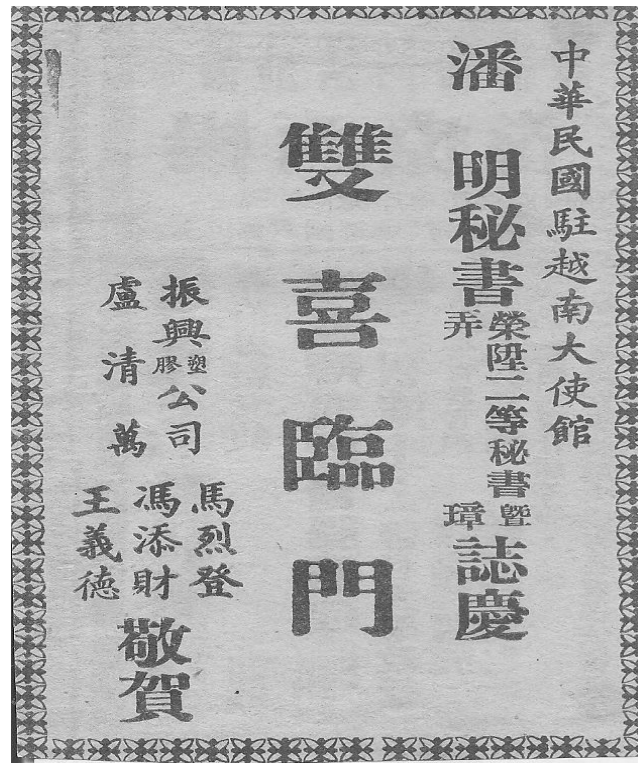 中華民國駐越南大使館
潘 明秘書榮陞二等秘書暨弄璋誌慶
雙喜臨門
振興塑膠公司
盧清萬
馬烈登
馮添財
王義德
敬賀